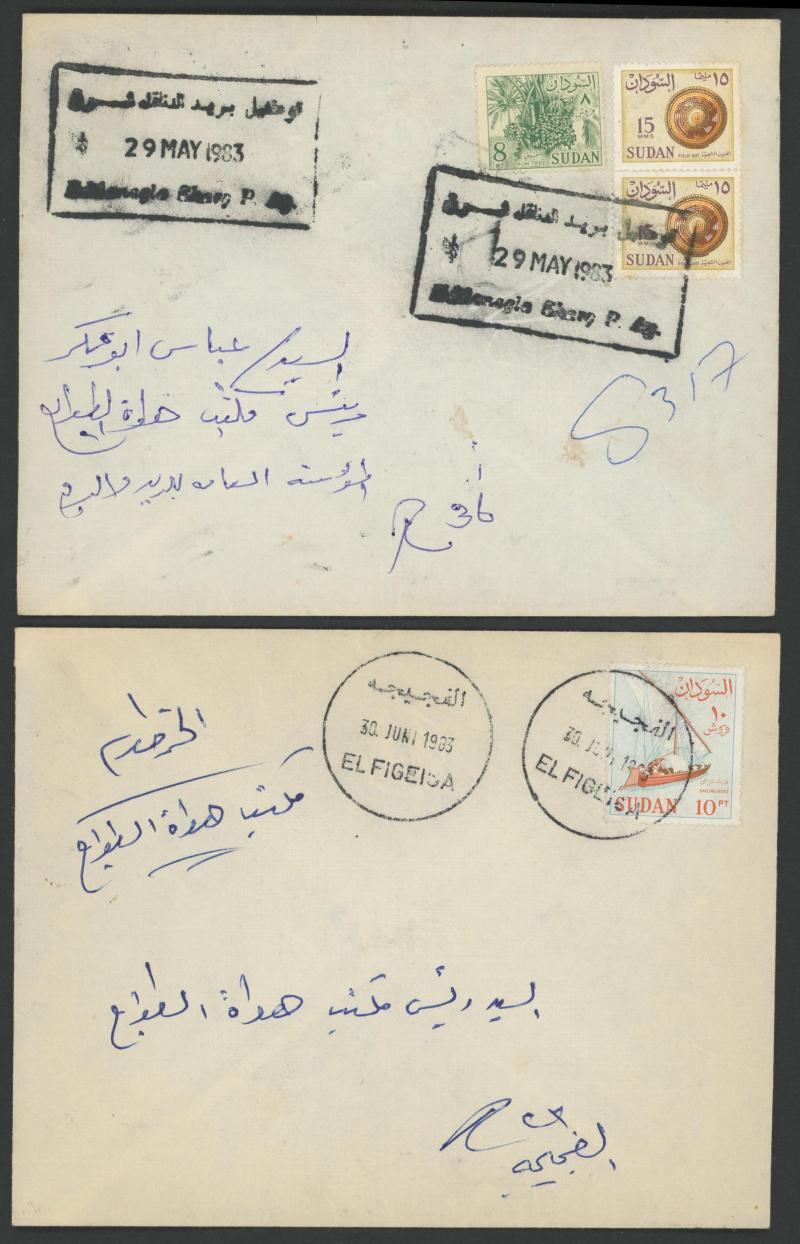 توكيل بريد المناقل شرق
29 MAY 1983
P. Ag.
السودان
٨
قروش
8 PT
PALM TREES
SUDAN
السودان
١٥ مليما
15
MMS
SUDAN
FOLK ART
السودان
١٥ مليما
15
MMS
SUDAN
FOLK ART
توكيل بريد المناقل شرق
29 MAY 1983
P. Ag.
السيد/ عباس ابو عكر
رئيس مكتب هواة الطوابع
المؤسسة العامه للبريد والبرق
S317
R 36
الفجيجه
30. JUNI 1983
EL FIGEIGA
الفجيجه
30. JUNI 1983
EL FIGEIGA
السودان
١٠
قروش
SAILING BOAT
SUDAN 10 PT
الخرطوم
مكتب هواة الطوابع
السيد رئيس مكتب هواة الطوابع
R
الفجيجه